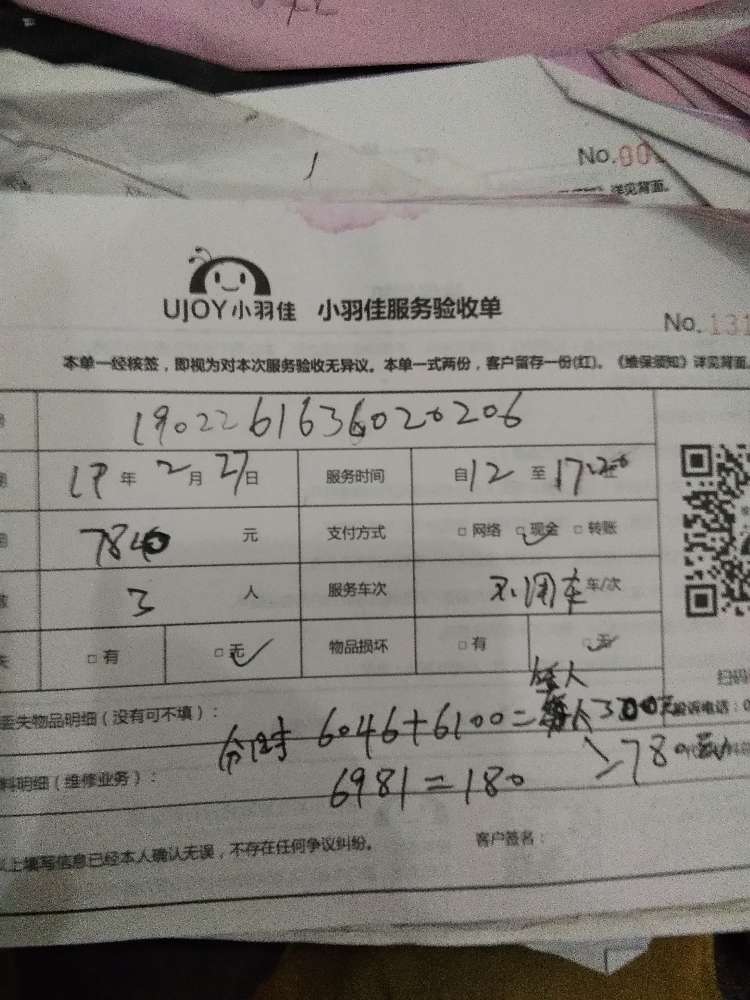 No.00
详见背面。
UJOY小羽佳 小羽佳服务验收单
No.131
本单一经核签，即视为对本次服务验收无异议。本单一式两份，客户留存一份(红)。《维保须知》详见背面。
1902261636020206
19年2月27日 服务时间 自12 至17
7840 元 支付方式 □网络 □现金 □转账
3 人 服务车次 不用车 车/次
□有 □无 物品损坏 □有 □无
扫码
每人
丢失物品明细（没有可不填）： 6046+6100=每人300元 投诉电话：0
料明细（维修业务）： 6981=180
以上填写信息已经本人确认无误，不存在任何争议纠纷。 客户签名：